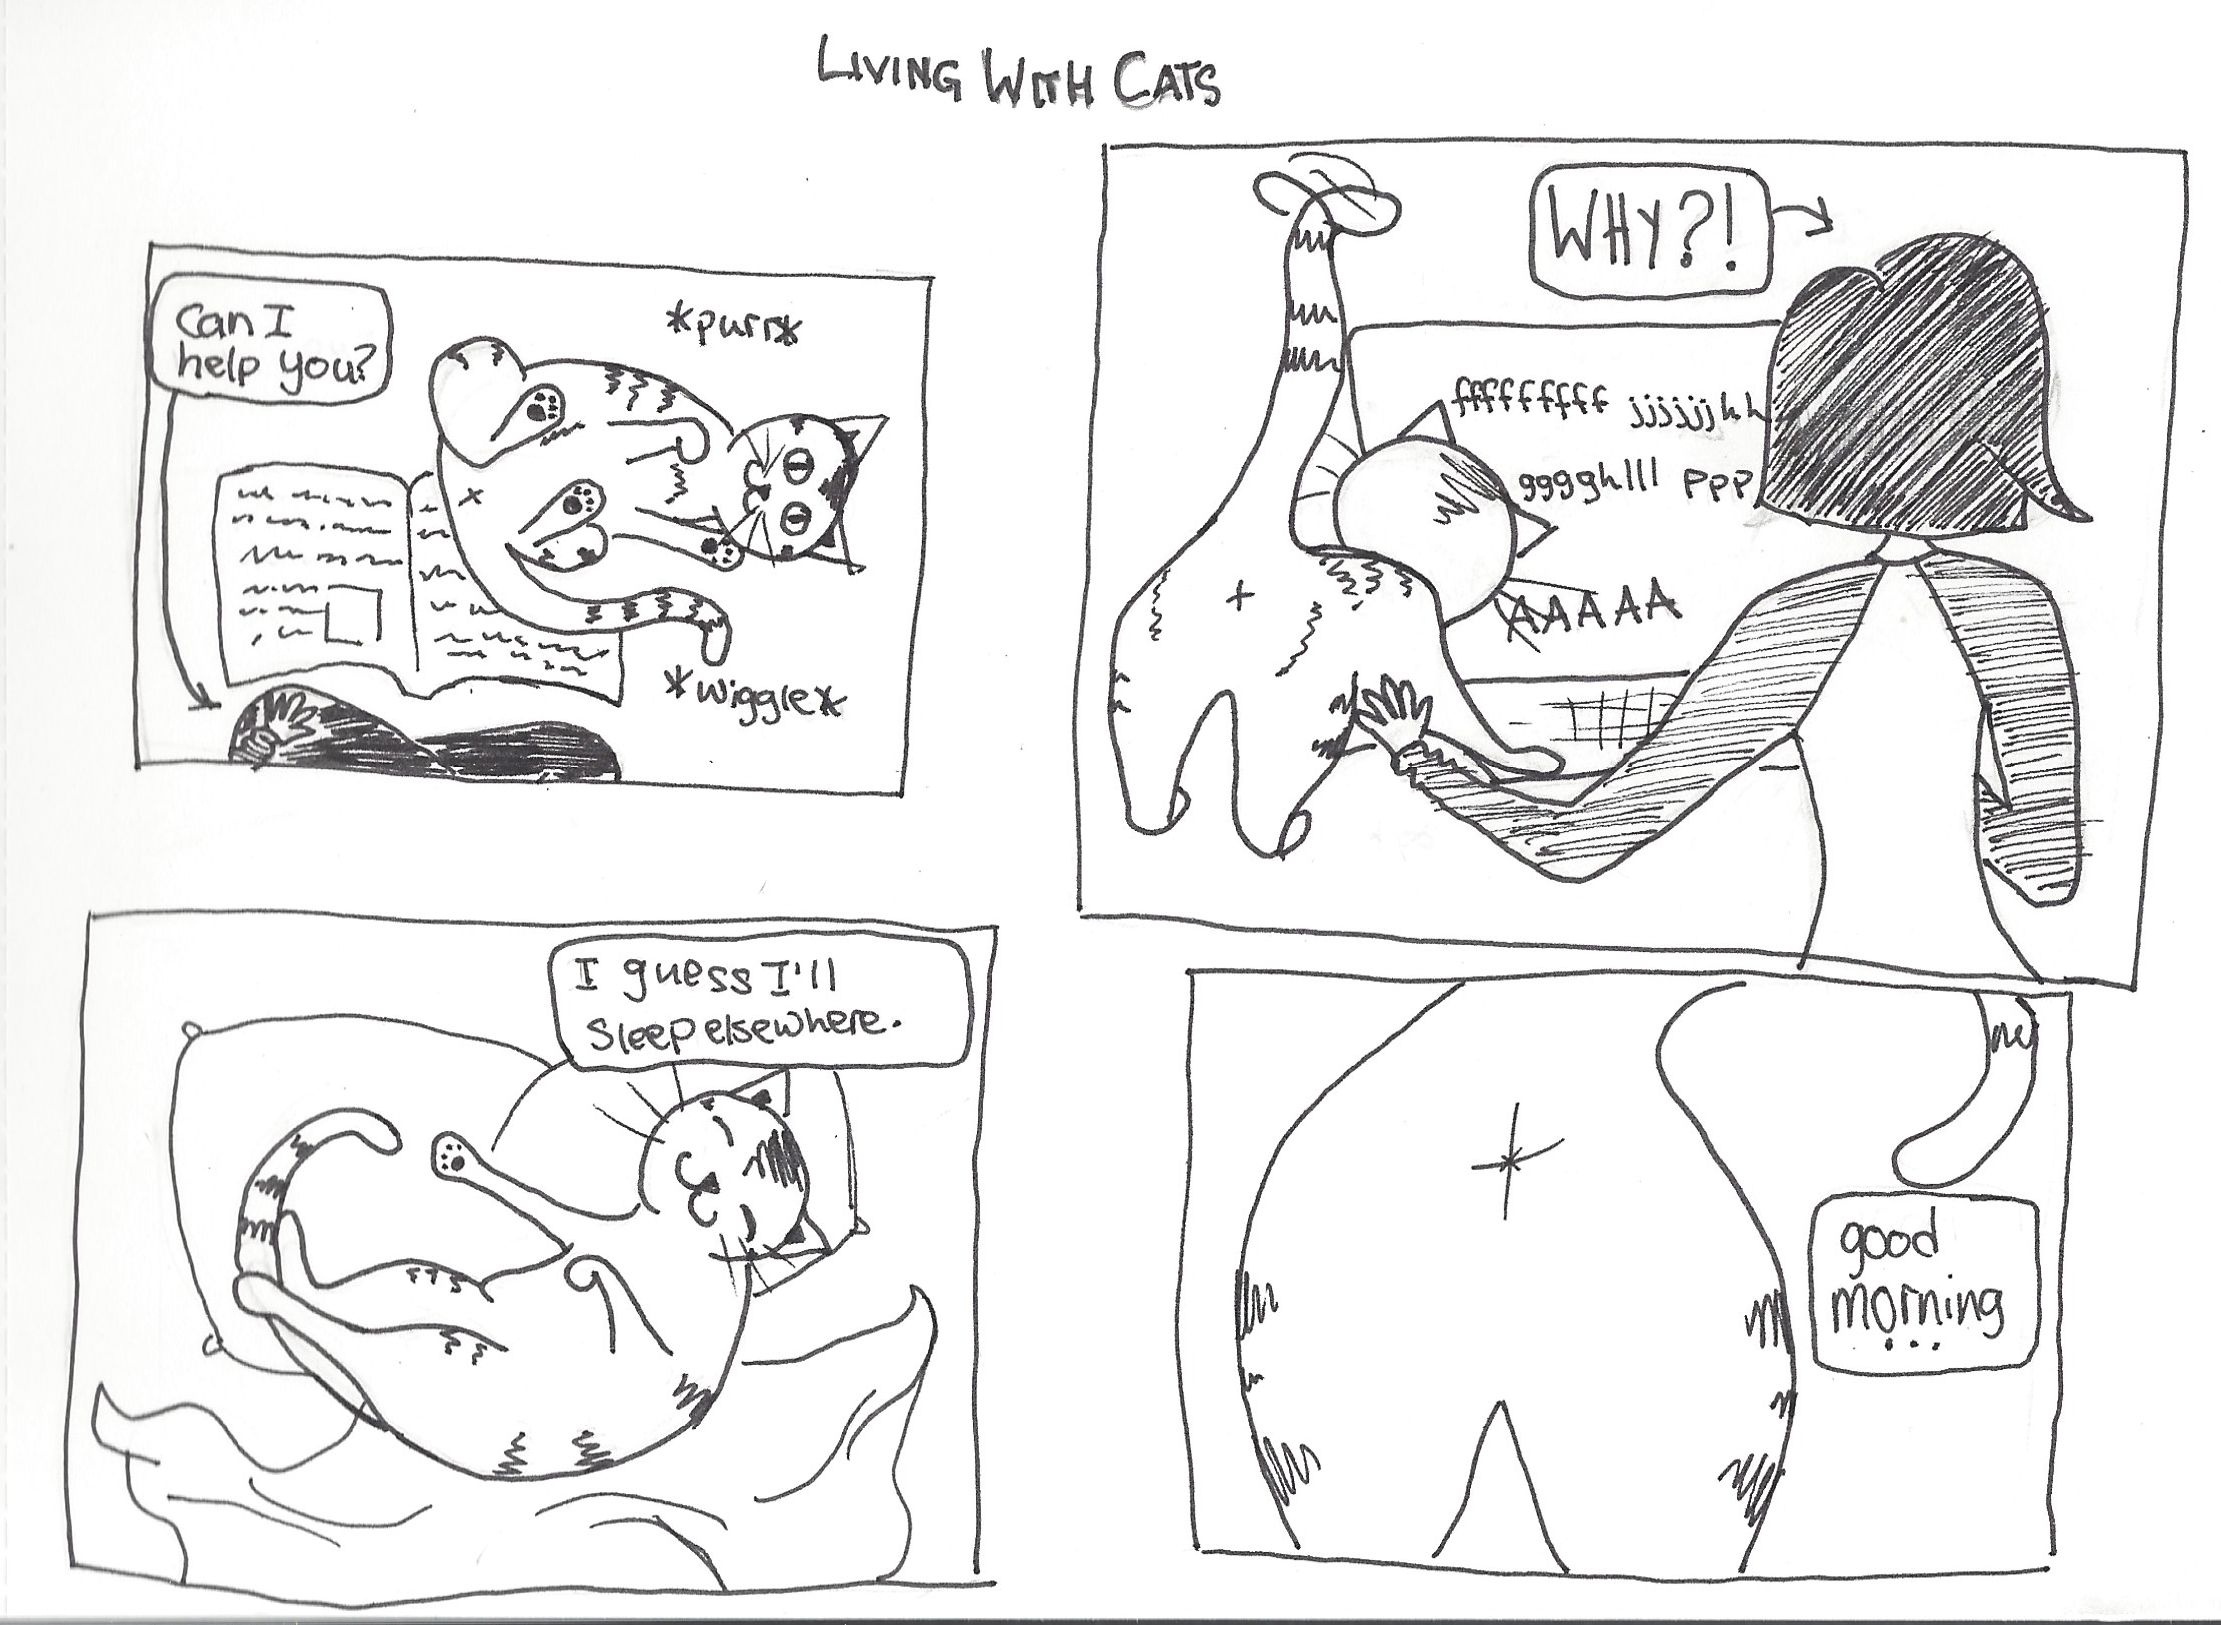 LIVING WITH CATS
Can I
help you?
*purr*
*wiggle*
WHY?!
fffffffff jjjjjjhh
gggghlll ppp
AAAAA
I guess I'll
Sleep elsewhere.
good
morning
...